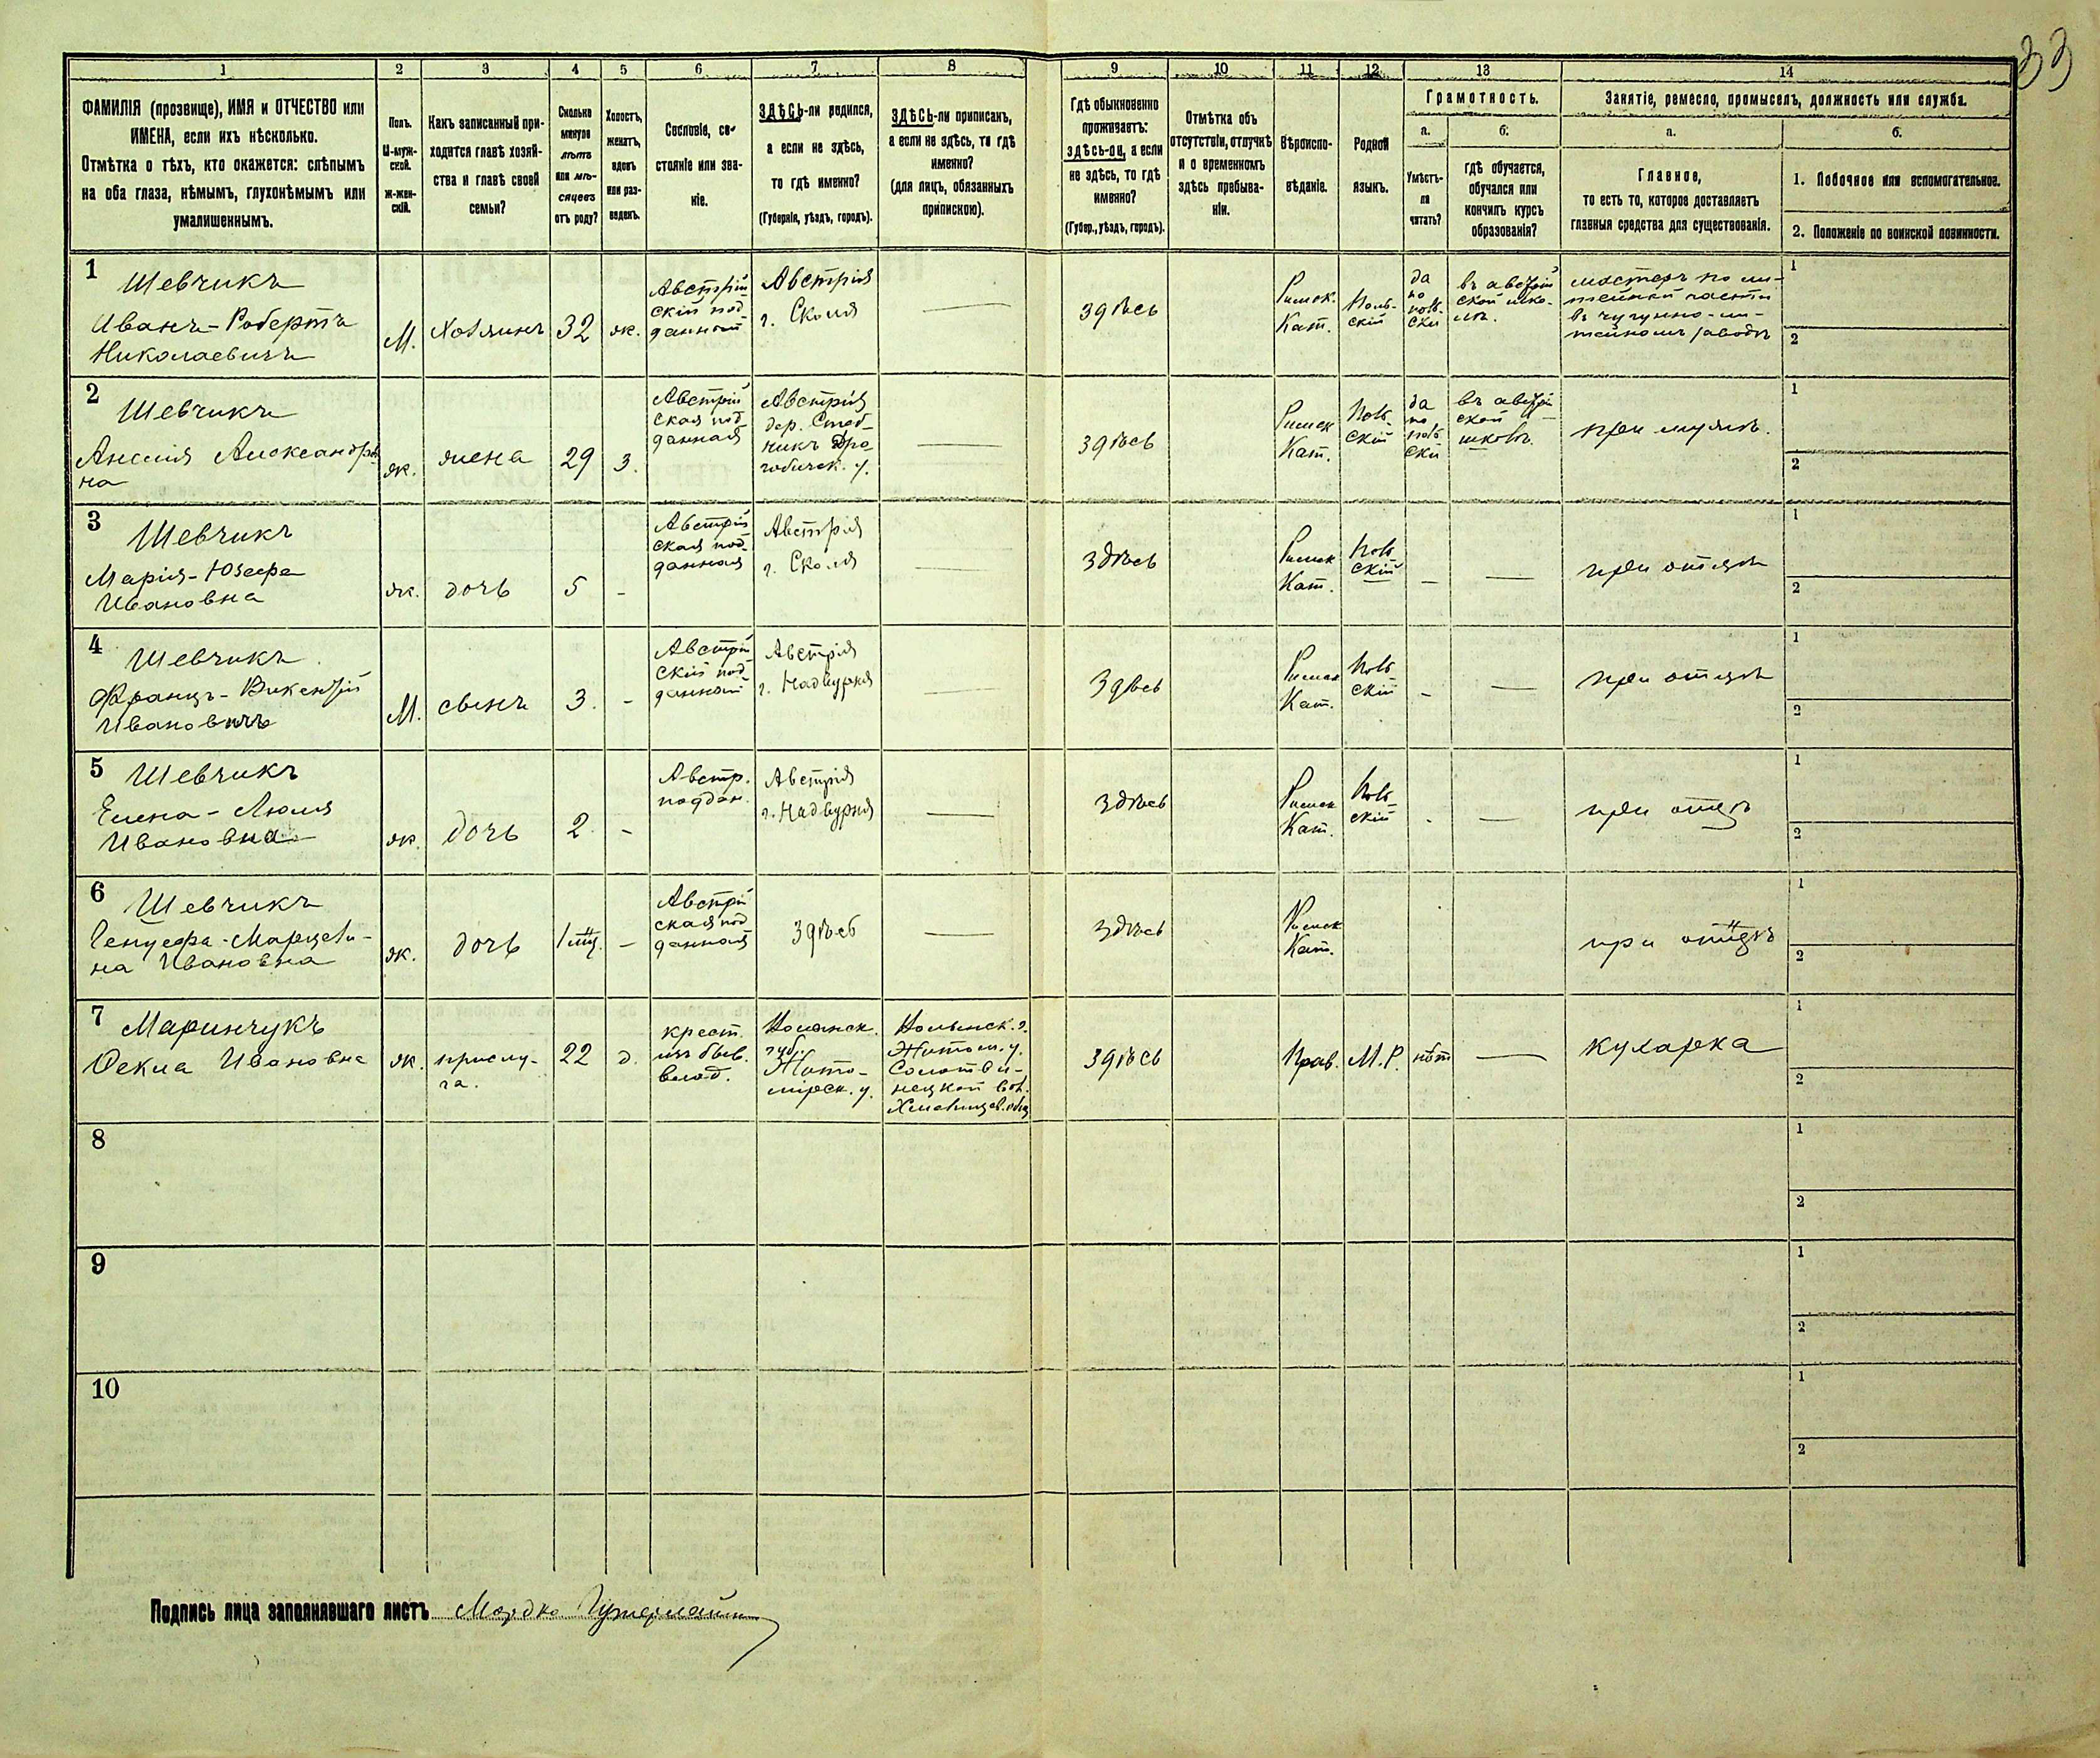 33
1 2 3 4 5 6 7 8 9 10 11 12 13 14
ФАМИЛІЯ (прозвище), ИМЯ и ОТЧЕСТВО или
ИМЕНА, если ихъ нѣсколько.
Отмѣтка о тѣхъ, кто окажется: слѣпымъ
на оба глаза, нѣмымъ, глухонѣмымъ или
умалишеннымъ.
Полъ.
М-муж-
ской.
Ж-жен-
скій.
Какъ записанный при-
ходится главѣ хозяй-
ства и главѣ своей
семьи?
Сколько
минуло
лѣтъ
или мѣ-
сяцевъ
отъ роду?
Холостъ,
женатъ,
вдовъ
или раз-
веденъ.
Сословіе, со-
стояніе или зва-
ніе.
ЗДѢСЬ-ли родился,
а если не здѣсь,
то гдѣ именно?
(Губернія, уѣздъ, городъ).
ЗДѢСЬ-ли приписанъ,
а если не здѣсь, то гдѣ
именно?
(для лицъ, обязанныхъ
припискою).
Гдѣ обыкновенно
проживаетъ:
здѣсь-ли, а если
не здѣсь, то гдѣ
именно?
(Губер., уѣздъ, городъ).
Отмѣтка объ
отсутствіи, отлучкѣ
и о временномъ
здѣсь пребыва-
ніи.
Вѣроиспо-
вѣданіе.
Родной
языкъ.
Грамотность.
а.
Умѣетъ-
ли
читать?
б.
гдѣ обучается,
обучался или
кончилъ курсъ
образованія?
Занятіе, ремесло, промыселъ, должность или служба.
а.
Главное,
то есть то, которое доставляетъ
главныя средства для существованія.
б.
1. Побочное или вспомогательное.
2. Положеніе по воинской повинности.
1
Шевчикъ
Иванъ-Робертъ
Николаевичъ
М.
Хозяинъ
32
ж.
Австрій
скій под-
данный
Австрія
г. Сколя
здѣсь
Римск.
Кат.
Поль-
скій
да
по
поль-
ски
въ австрій
ской шко-
лѣ.
мастеръ по ли-
тейной части
въ чугунно-ли-
тейномъ заводѣ
1
2
2
Шевчикъ
Амалія Александров
на
ж.
жена
29
з.
Австрій
ская под
данная
Австрія
дер. Стеб-
никъ Дро-
гобическ. у.
здѣсь
Римск
Кат.
Поль
скій
да
по
поль
ски
въ австрій
ской
школѣ.
при мужѣ.
1
2
3
Шевчикъ
Марія-Юзефа
Ивановна
ж.
дочь
5
-
Австрій
ская под-
данная
Австрія
г. Сколя
здѣсь
Римск
Кат.
Поль
скій
при отцѣ
1
2
4
Шевчикъ
Францъ-Викентій
Ивановичъ
М.
сынъ
3.
-
Австрій
скій под-
данный
Австрія
г. Надвурня
здѣсь
Римск
Кат.
Поль
скій
при отцѣ
1
2
5
Шевчикъ
Елена-Люция
Ивановна
ж.
дочь
2
-
Австр.
поддан.
Австрія
г. Надвурня
здѣсь
Римск
Кат.
Поль
скій
при отцѣ
1
2
6
Шевчикъ
Генуефа-Марцели-
на Ивановна
ж.
дочь
1 мц.
-
Австрій
ская под
данная
здѣсь
здѣсь
Римск
Кат.
при отцѣ
1
2
7
Маринчукъ
Фекла Ивановна
ж.
прислу-
га.
22
д.
крест.
изъ быв.
влад.
Волынск.
губ.
Жито-
мірск. у.
Волынск. г.
Житом. у.
Солотви-
нецкой вол.
здѣсь
Прав.
М.Р.
нѣт
кухарка
1
2
8
1
2
9
1
2
10
1
2
Подпись лица заполнявшаго листъ Мордко